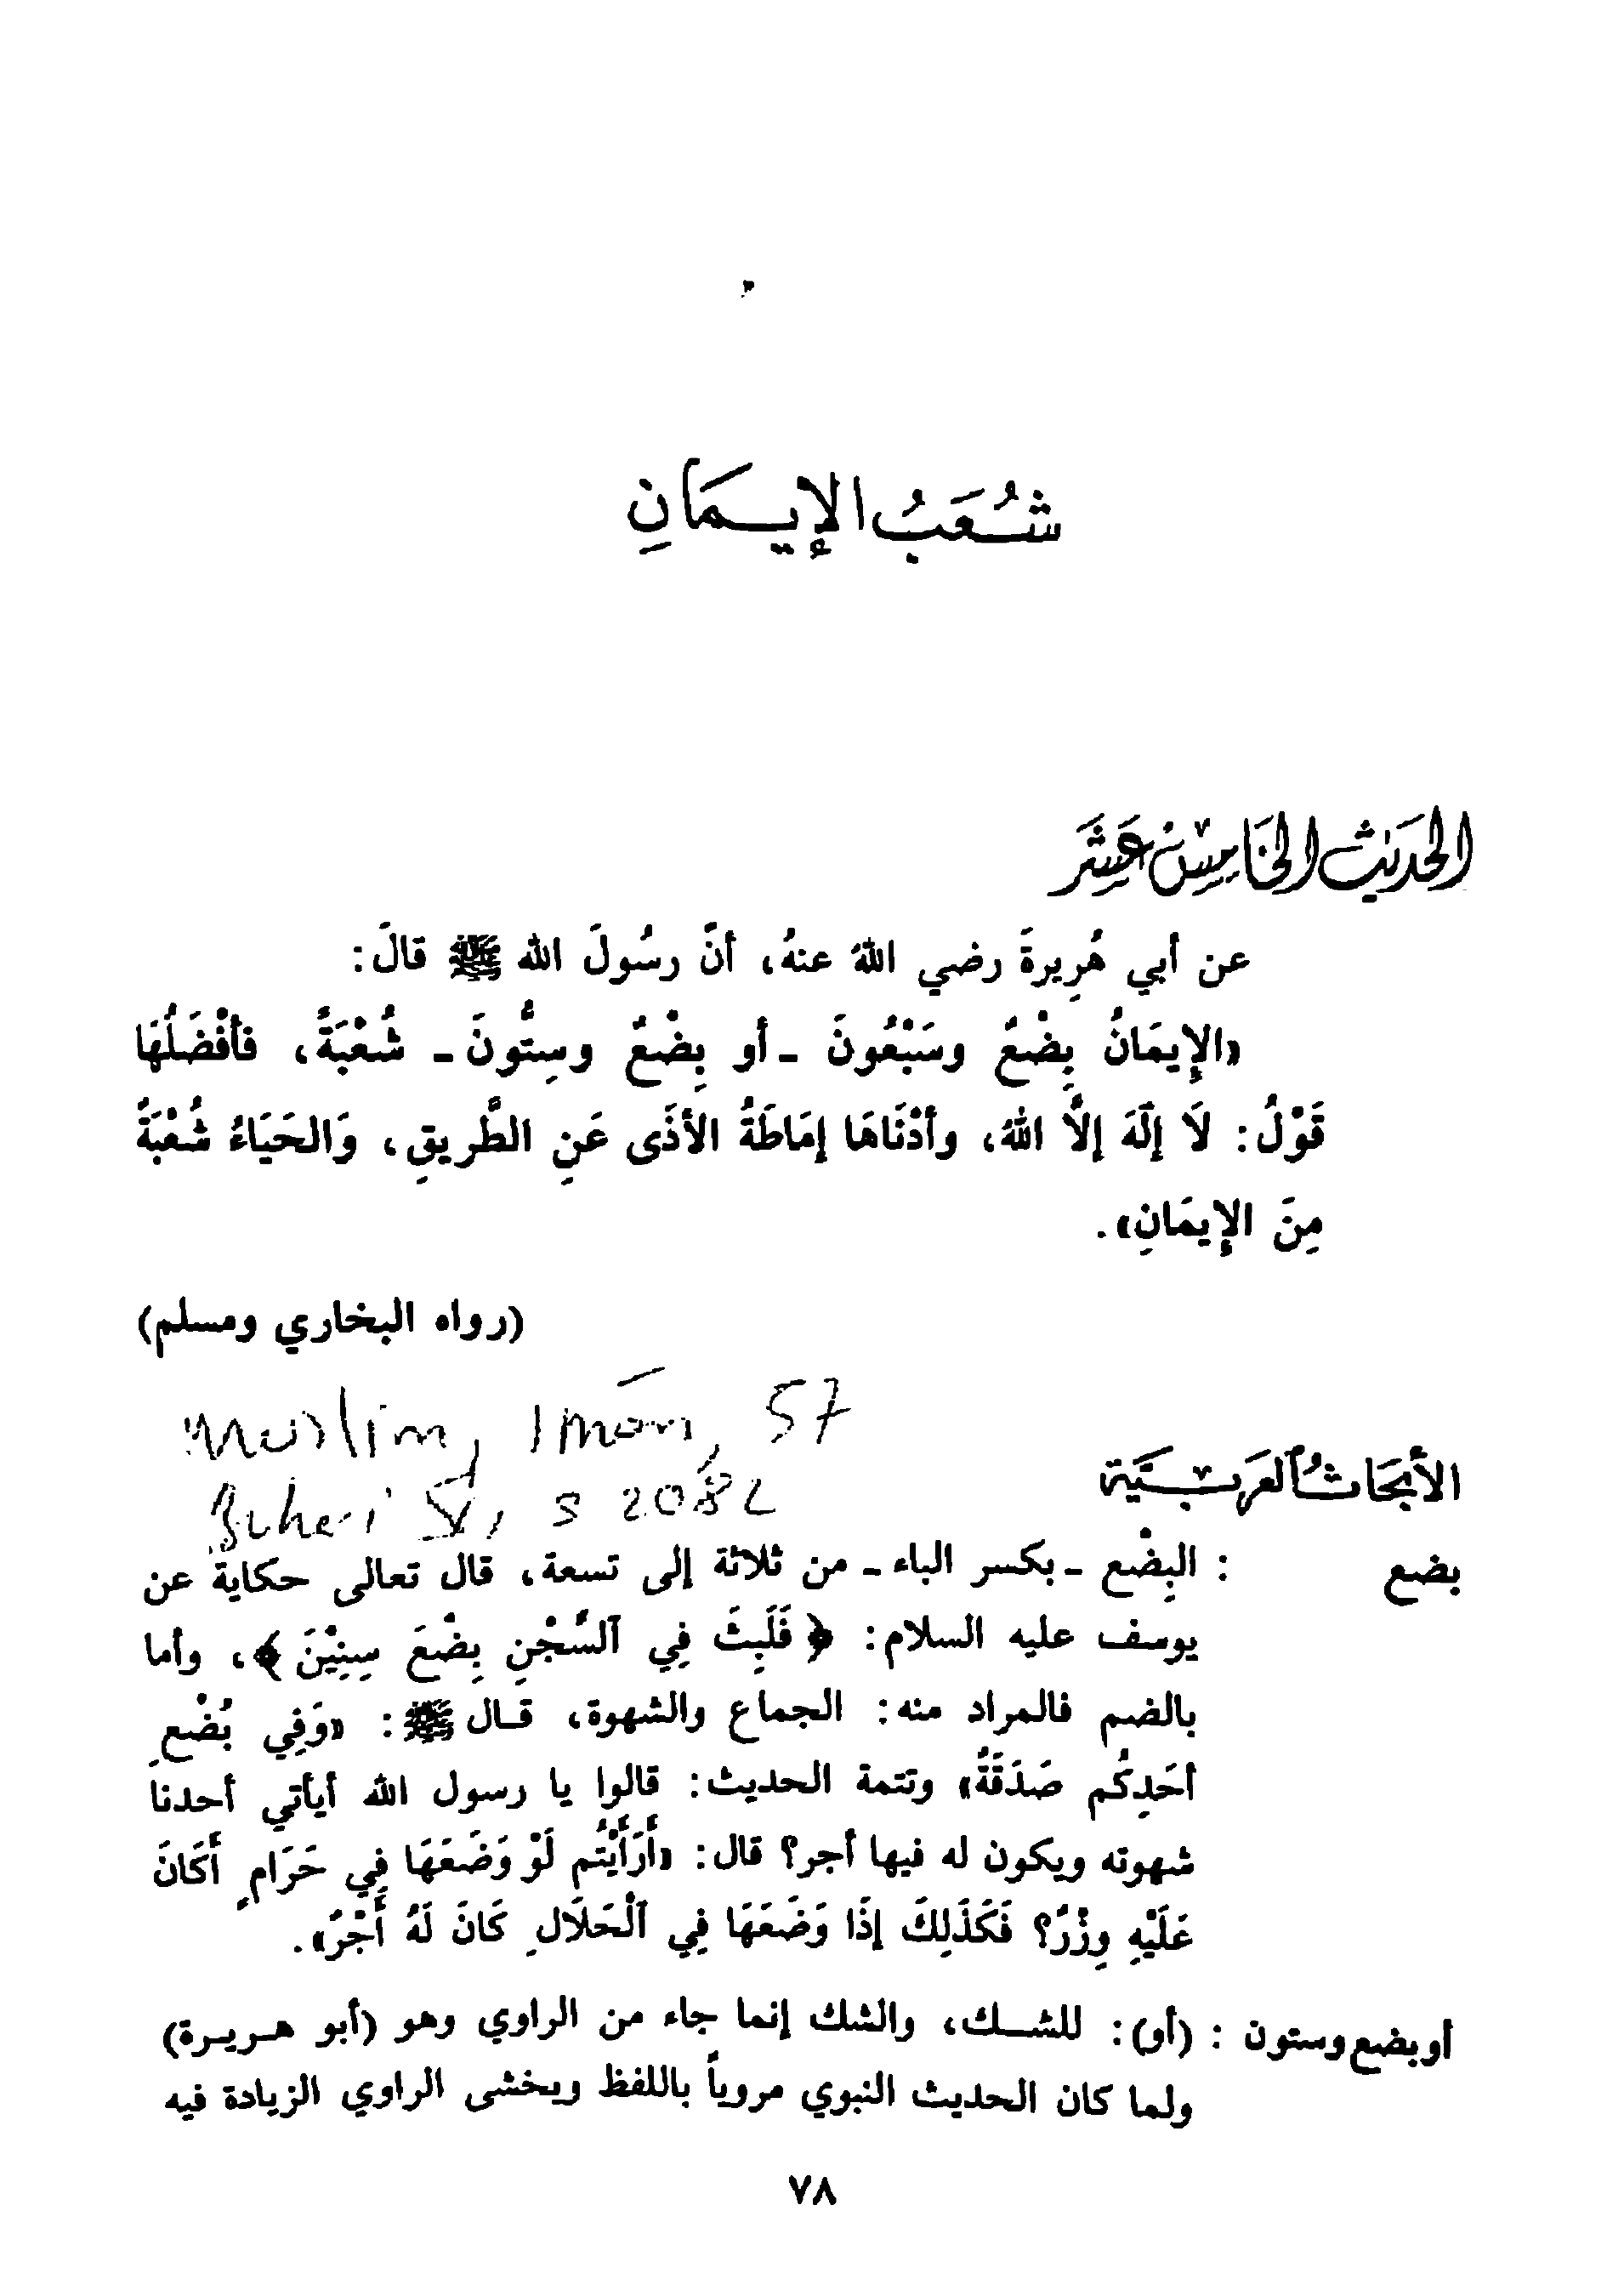 شُعَبُ الإِيمَانِ
الحَدِيث الخَامِس عَشَر
عن أبي هُرِيرةَ رضي اللهُ عنهُ، أنَّ رسُولَ الله ﷺ قالَ:
«الإِيمَانُ بِضْعٌ وسَبْعُونَ - أو بِضْعٌ وسِتُّونَ - شُعْبَةً، فأفْضَلُهَا
قَوْلُ: لَا إلَهَ إلَّا اللهُ، وأدْنَاهَا إمَاطَةُ الأذَى عَنِ الطَّرِيقِ، وَالحَيَاءُ شُعْبَةٌ
مِنَ الإِيمَانِ».
(رواه البخاري ومسلم)
Muslim, Imān, 57
Buheri V, s 2082
الأبحَاثُ العَرَبيَّة
بضع : البِضْع - بكسر الباء - من ثلاثة إلى تسعة، قال تعالى حكاية عن
يوسف عليه السلام: ﴿فَلَبِثَ فِي ٱلسِّجْنِ بِضْعَ سِنِيْنَ﴾، وأما
بالضم فالمراد منه: الجماع والشهوة، قال ﷺ: «وَفِي بُضْعِ
أحَدِكُم صَدَقَةٌ» وتتمة الحديث: قالوا يا رسول الله أيأتي أحدنا
شهوته ويكون له فيها أجر؟ قال: «أَرَأَيْتُم لَوْ وَضَعَهَا فِي حَرَامٍ أَكَانَ
عَلَيْهِ وِزْرٌ؟ فَكَذَلِكَ إذَا وَضَعَهَا فِي ٱلْحَلَالِ كَانَ لَهُ أَجْرٌ».
أو بضع وستون : (أو): للشك، والشك إنما جاء من الراوي وهو (أبو هريرة)
ولما كان الحديث النبوي مروياً باللفظ ويخشى الراوي الزيادة فيه
٧٨